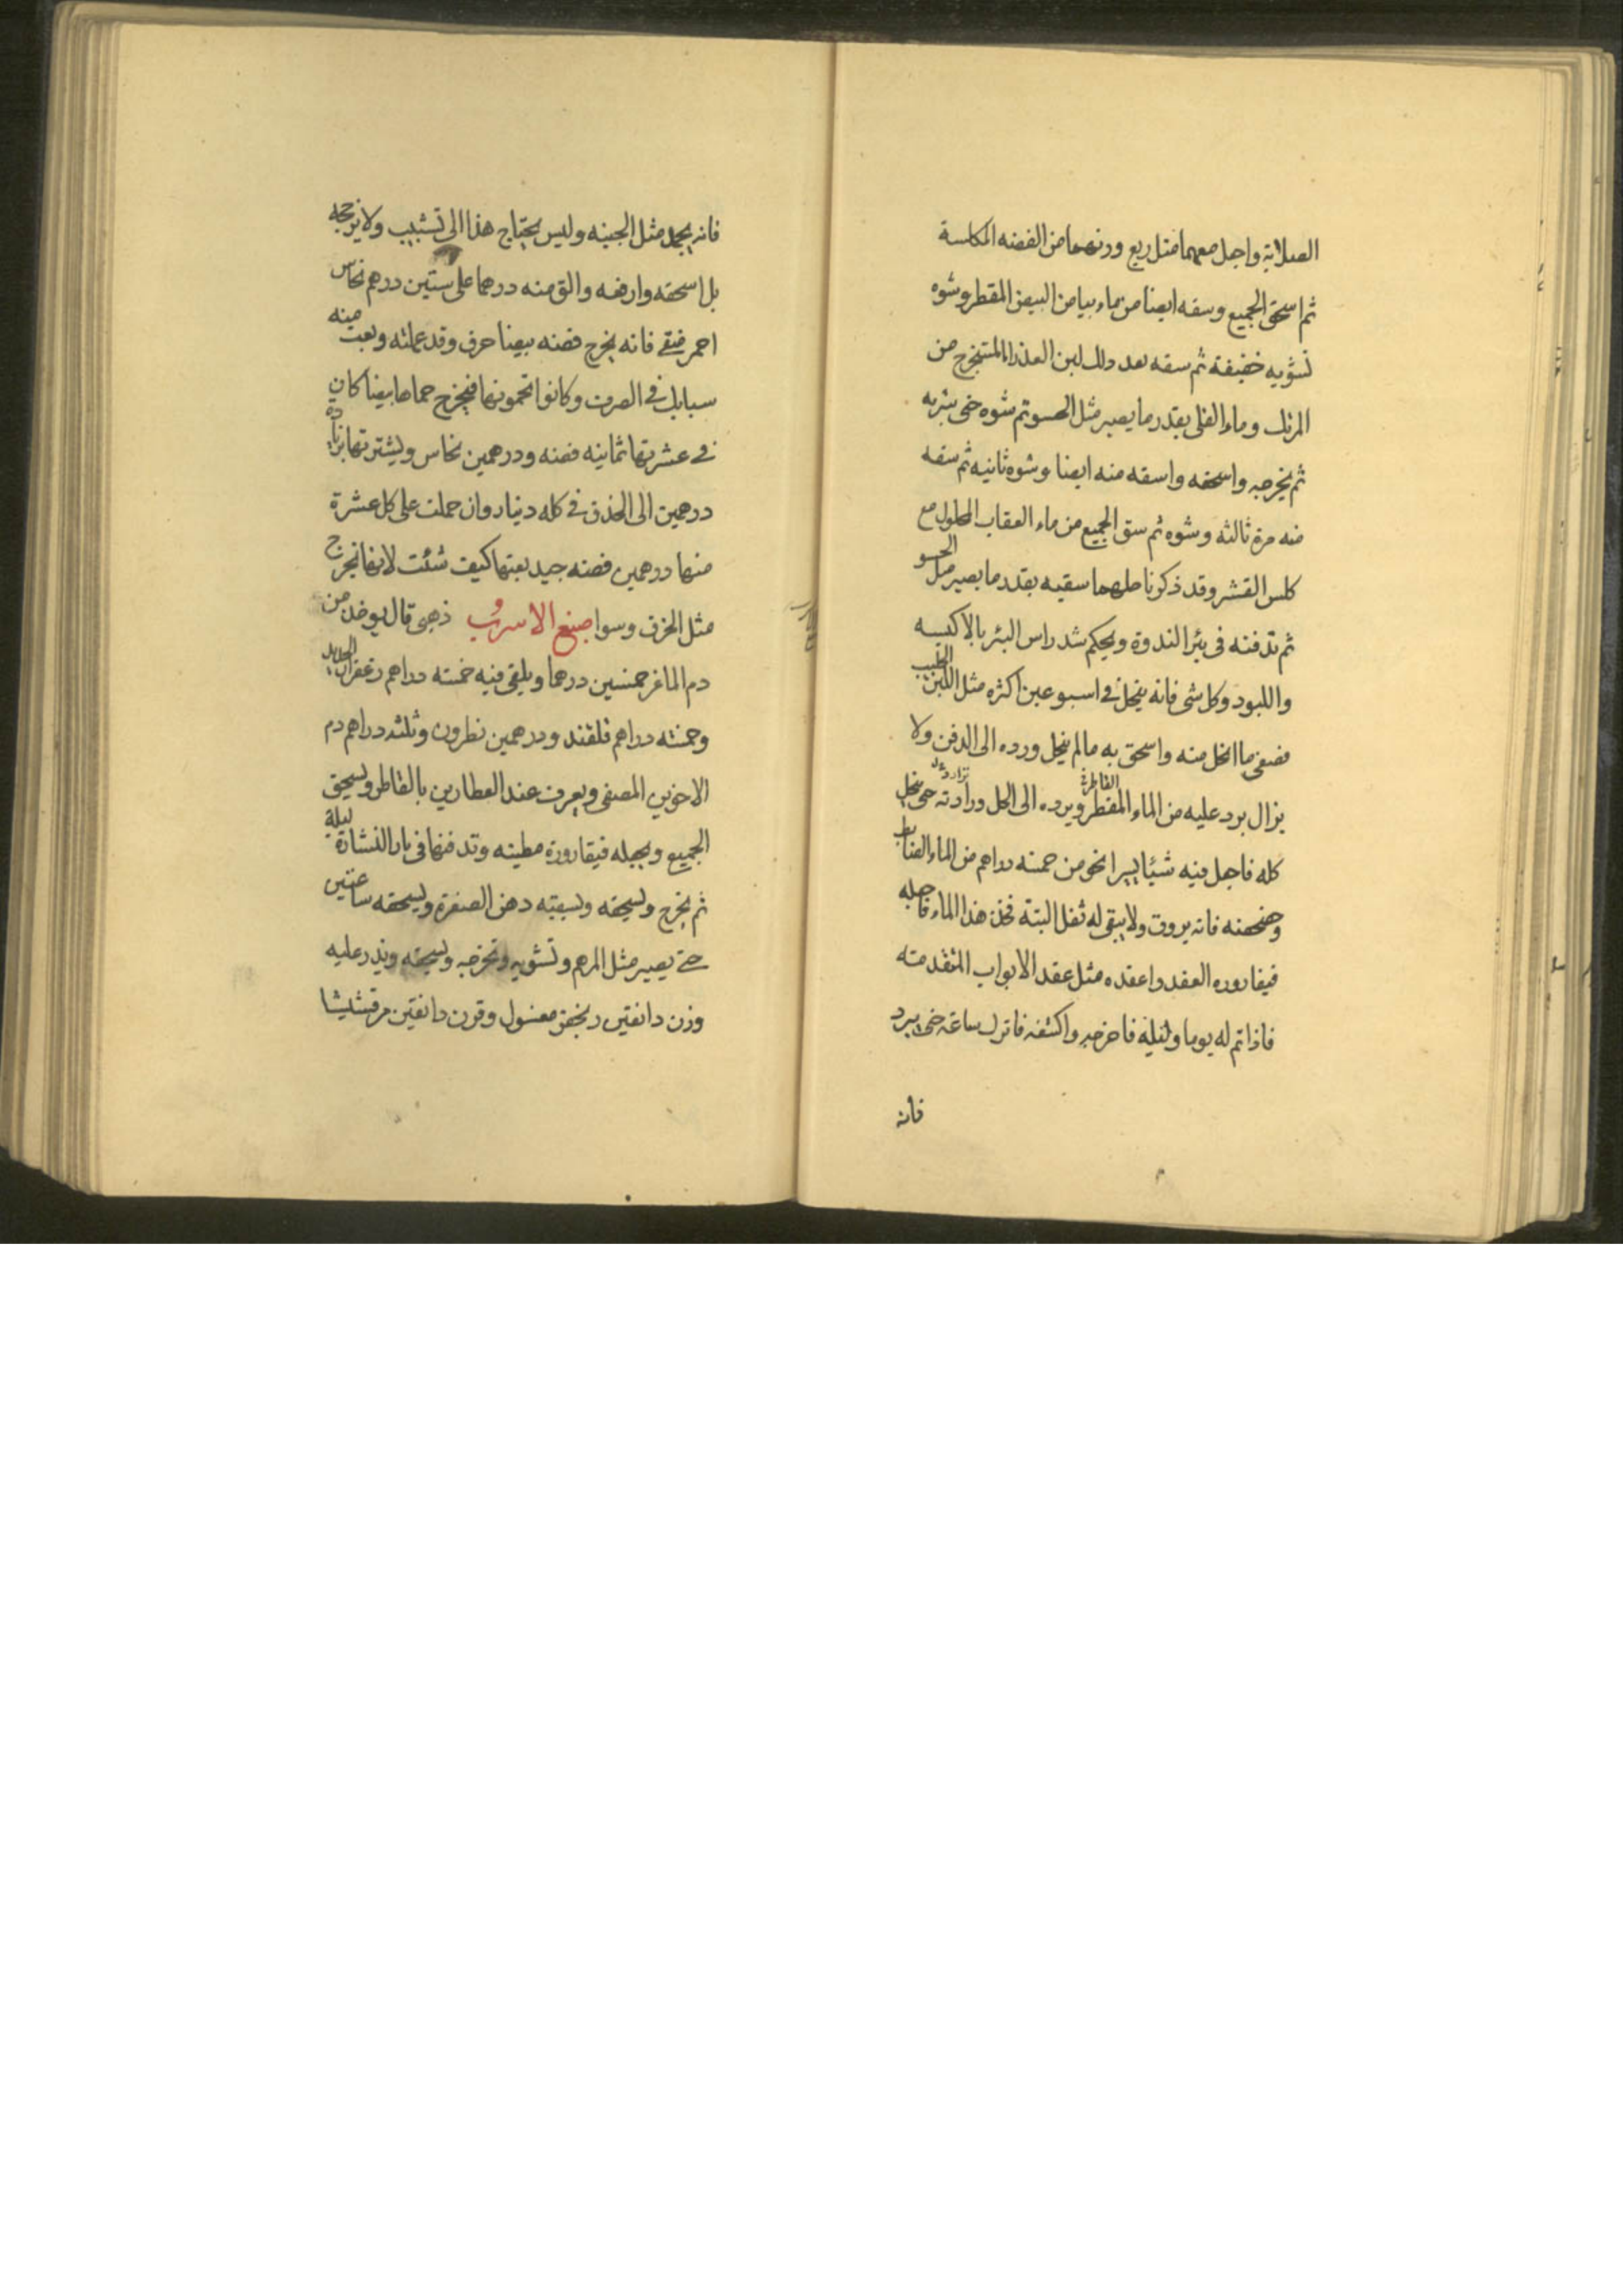 الصلابة واجل معهما مثل ربع ورنهما من الفضه المكلسة
ثم اسحق الجميع وسقه ايضا من ماء بياض البيض المقطر وشوه
تشويه خفيفة ثم سقه بعد ذلك لبن العذرا المستخرج من
المرتك وماء القلى بقدر ما يصير مثل الحسو ثم شوه حتى يشربه
ثم يخرجه واسحقه واسقه منه ايضا وشوه ثانيه ثم سقه
منه مرة ثالثه وشوه ثم سق الجميع من ماء العقاب المحلول مع
كلس القشر وقد ذكرنا حلهما سقيه بقدر ما يصير مثل الحسو
ثم تدفنه فى بئر الندوة ويحكم شد راس البئر بالاكسيه
واللبود وكل شى فانه ينحل فى اسبوعين اكثره مثل اللبن الحليب
فصفى ما انحل منه واسحق به مالم ينحل ورده الى الدفن ولا
يزال يرد عليه من الماء المقطر القاطر ويرده الى الحل ورادته حتى ينحل
كله فاجل فيه شيئا يسيرا نحو من خمسه دراهم من الماء
وخضخضه فانه يروق ولا يبقى له ثفل البتة فخذ هذا الماء فاجله
فيقاروره العقد واعقده مثل عقد الابواب المتقدمته
فاذا تم له يوما وليلة فاخرجه واكشفه فاترك ساعة حتى يبرد
فانه
فانه يجمد مثل الجبنه وليس يحتاج هذا الى تشبيب ولا يزججه
بل اسحقه وارفعه والق منه درهما على ستين درهم نحاس
احمر منقى فانه يخرج فضه بيضا حرف وقد عملته وبعت منه
سبايك فى الصرف وكانوا يحمونها فيخرج حماها بيضا كان
فى عشرتها ثمانيه فضه ودرهمين نحاس ويشترتها بزيادة
درهمين الى الحذق فى كله دينار وان حملت على كل عشرة
منها درهمين فضه جيد بعتها كيف شئت لانها تخرج
مثل الحرق وسوا صبغ الاسرب ذهبى قال يوخذ من
دم الماغر خمسين درهما ويلقى فيه خمسه دراهم زعفران الحديد
وخمسه دراهم قلقند ودرهمين نطرون وثلثه دراهم دم
الاخوين المصفى ويعرف عند العطارين بالقاطر ويسحق
الجميع ويجعله فيقارورة مطينه وتدفنها فى نار النشارة ليلة
ثم يخرج ويسحقه ويسقيه دهن الصفرة ويسحقه ساعتين
حتى يصير مثل المرهم وتشويه وتخرجه ويسحقه ويذر عليه
وزن دانقين زنجفر مغسول وقرن دانقين مرقشيشا